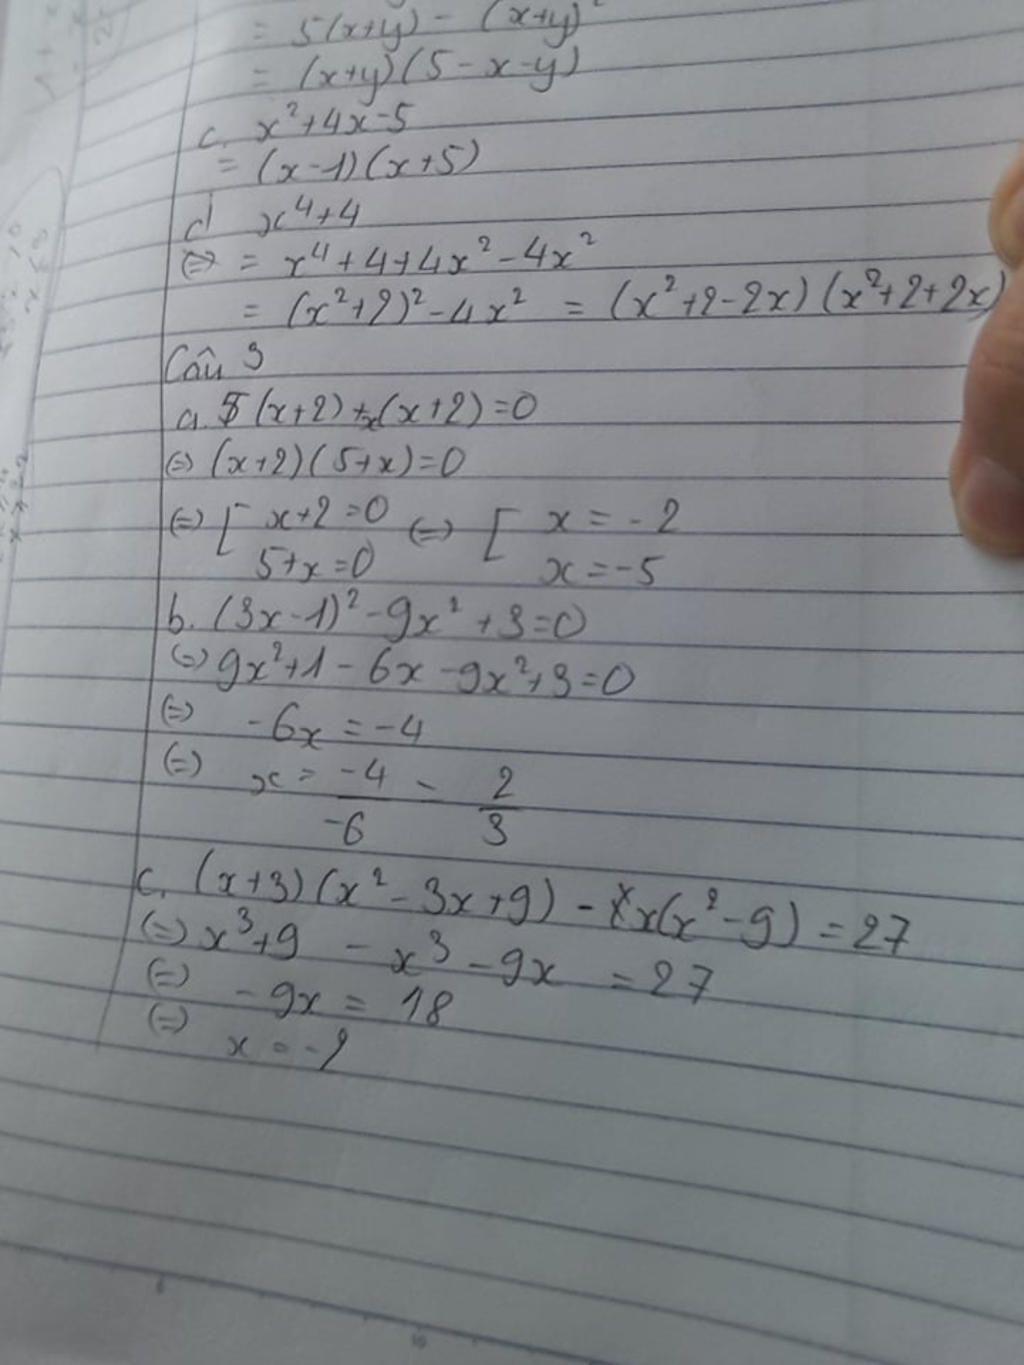 = 5(x+y) - (x+y)²
= (x+y)(5-x-y)
c. x²+4x-5
= (x-1)(x+5)
d x⁴+4
= x⁴+4+4x²-4x²
= (x²+2)²-4x² = (x²+2-2x)(x²+2+2x)
Câu 3
a. 5(x+2)+x(x+2)=0
(=) (x+2)(5+x)=0
(=) [ x+2=0 (=) [ x = -2
5+x=0 x = -5
b. (3x-1)²-9x²+3=0
(=) 9x²+1-6x-9x²+3=0
(=) -6x = -4
(=) x = -4/-6 = 2/3
c. (x+3)(x²-3x+9) - x(x²-9) = 27
(=) x³+9 - x³-9x = 27
(=) -9x = 18
(=) x = -2